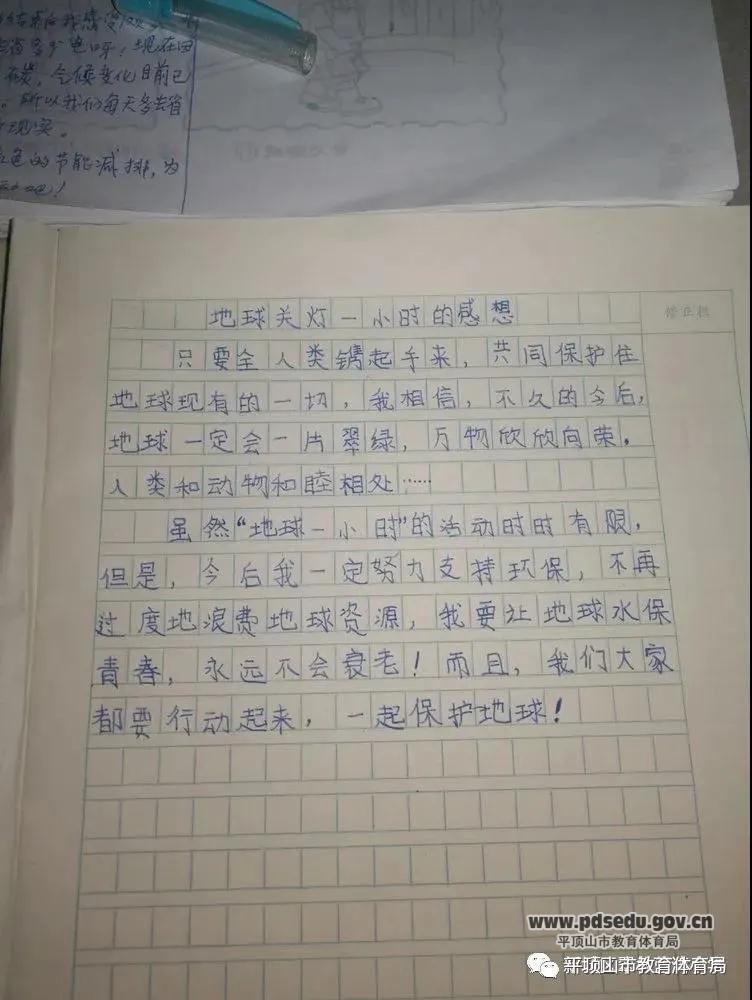 省多少电呀！现在由
碳，气候变化目前已
。所以我们每天多去省
现实。
色的节能减排，为
吧！
地球关灯一小时的感想
修正栏
只要全人类镌起手来，共同保护住
地球现有的一切，我相信，不久的今后，
地球一定会一片翠绿，万物欣欣向荣。
人类和动物和睦相处……
虽然“地球一小时”的活动时时有限，
但是，今后我一定努力支持环保，不再
过度地浪费地球资源，我要让地球水保
青春，永远不会衰老！而且，我们大家
都要行动起来，一起保护地球！
www.pdsedu.gov.cn
平顶山市教育体育局
平顶山市教育体育局